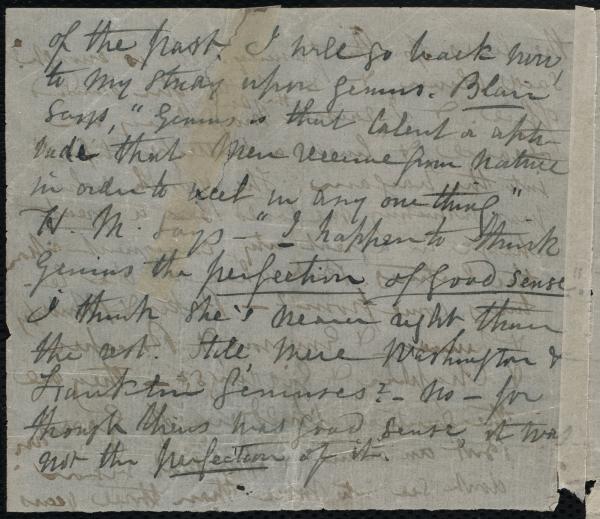 of the past. I will go back now,
to my study upon genius. Blair
says, "Genius is that talent or apti-
tude that men receive from nature
in order to excel in any one thing"
H. M. says - "I happen to think
Genius the perfection of good sense".
I think she's nearer right than
the rest. Still, were Washington &
Franklin Geniuses? - No - for
though theirs was good sense, it was
not the perfection of it.